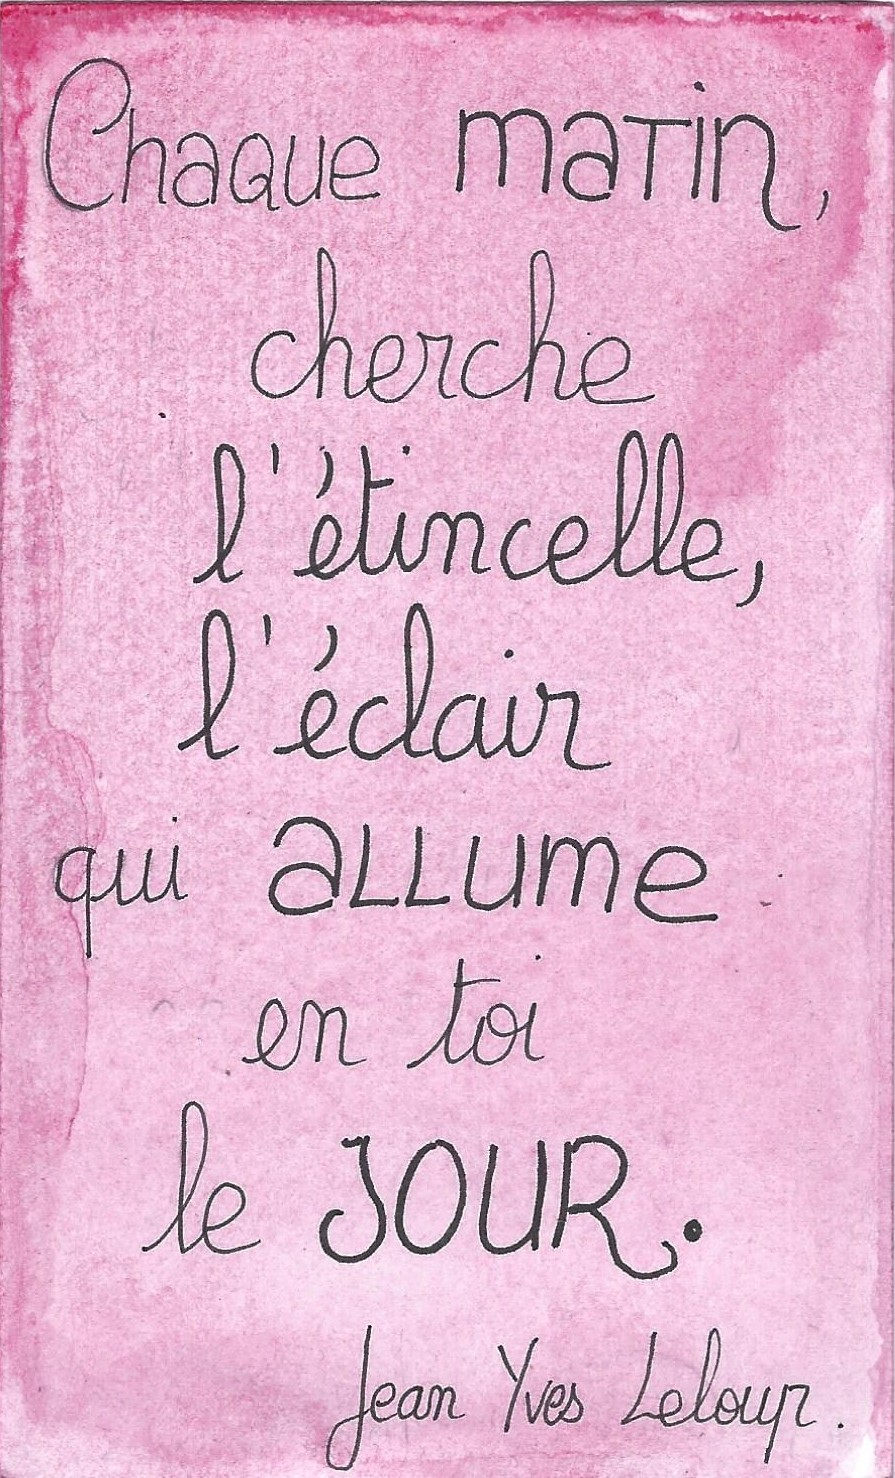 Chaque matin,
cherche
l'étincelle,
l'éclair
qui allume
en toi
le JOUR.
Jean Yves Leloup.